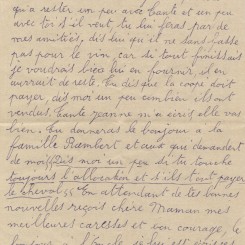 qu'a rester un peu avec Tante et un peu
avec toi s'il veut, tu lui feras part de
mes amitiés, dis lui qu'il ne s'en fasse
pas pour le vin, car si tout finissait
je voudrais bien lui en fournir il en
aurait de reste. Tu dis que la coupe doit
payer, dis moi un peu combien ils ont
vendus. Tante Jeanne m'a écris elle vas
bien. Tu donneras le bonjour a la
famille Rambert et a ceux qui demandent
de moi. Dis moi un peu si tu touche
toujours l'allocation et s'ils t'ont payer
le cheval. En attendant de tes bonnes
nouvelles reçois chère Maman mes
meilleures caresses et bon courage, le